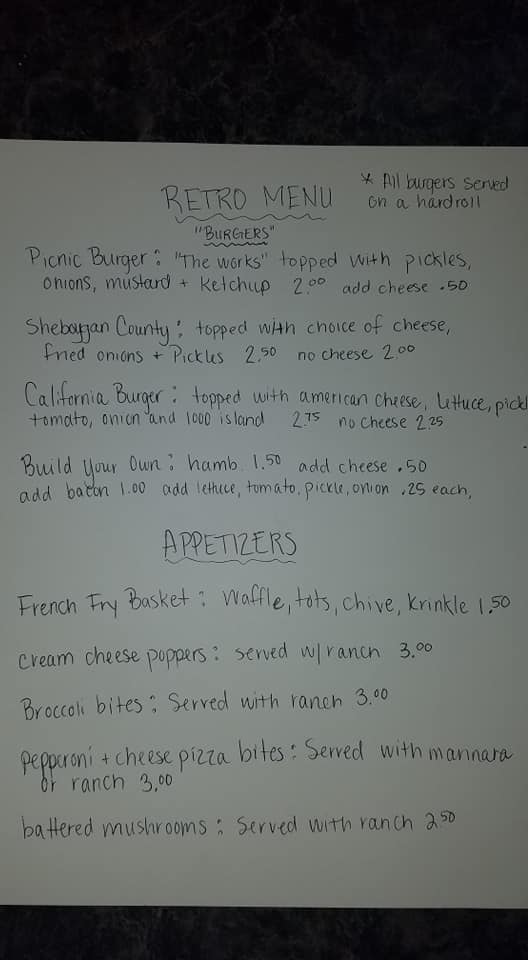 RETRO MENU
* All burgers served
on a hardroll
"BURGERS"
Picnic Burger: "The works" topped with pickles,
onions, mustard + ketchup 2.00 add cheese .50
Sheboygan County: topped with choice of cheese,
fried onions + Pickles 2.50 no cheese 2.00
California Burger: topped with american cheese, lettuce, pickl
tomato, onion and 1000 island 2.75 no cheese 2.25
Build your own: hamb. 1.50 add cheese .50
add bacon 1.00 add lettuce, tomato, pickle, onion .25 each,
APPETIZERS
French Fry Basket: Waffle, tots, chive, krinkle 1.50
cream cheese poppers: served w/ranch 3.00
Broccoli bites: Served with ranch 3.00
Pepperoni + cheese pizza bites: Served with marinara
or ranch 3.00
battered mushrooms: Served with ranch 2.50